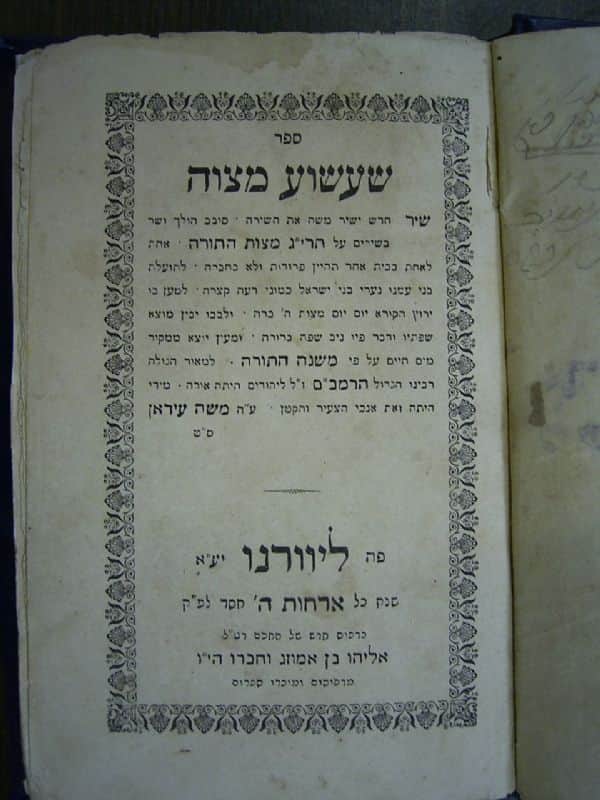 ספר
שעשוע מצוה
שיר חדש ישיר משה את השירה · סובב הולך ושר
בשירים על תרי"ג מצות התורה · אחת
לאחת בבית אחד תהיין פרודות ולא בחברה · לתועלת
בני עמנו נערי בני ישראל כמוני דעה קצרה · למען בו
ירוץ הקורא יום יום מצות ה' ברה · ולבבו יבין מוצא
שפתיו ודבר פיו ניב שפה ברורה · ומעין יוצא ממקור
מים חיים על פי משנה התורה · למאור הגולה
רבינו הגדול הרמב"ם ז"ל ליהודים היתה אורה · מידי
היתה זאת אנכי הצעיר והקטן · ע"ה משה עידאן
ס"ט
פה ליוורנו יע"א
שנת כל ארחות ה' חסד לפ"ק
בדפוס חדש של החכם
אליהו בן אמוזג וחברו הי"ו
מדפיסים ומוכרי ספרים